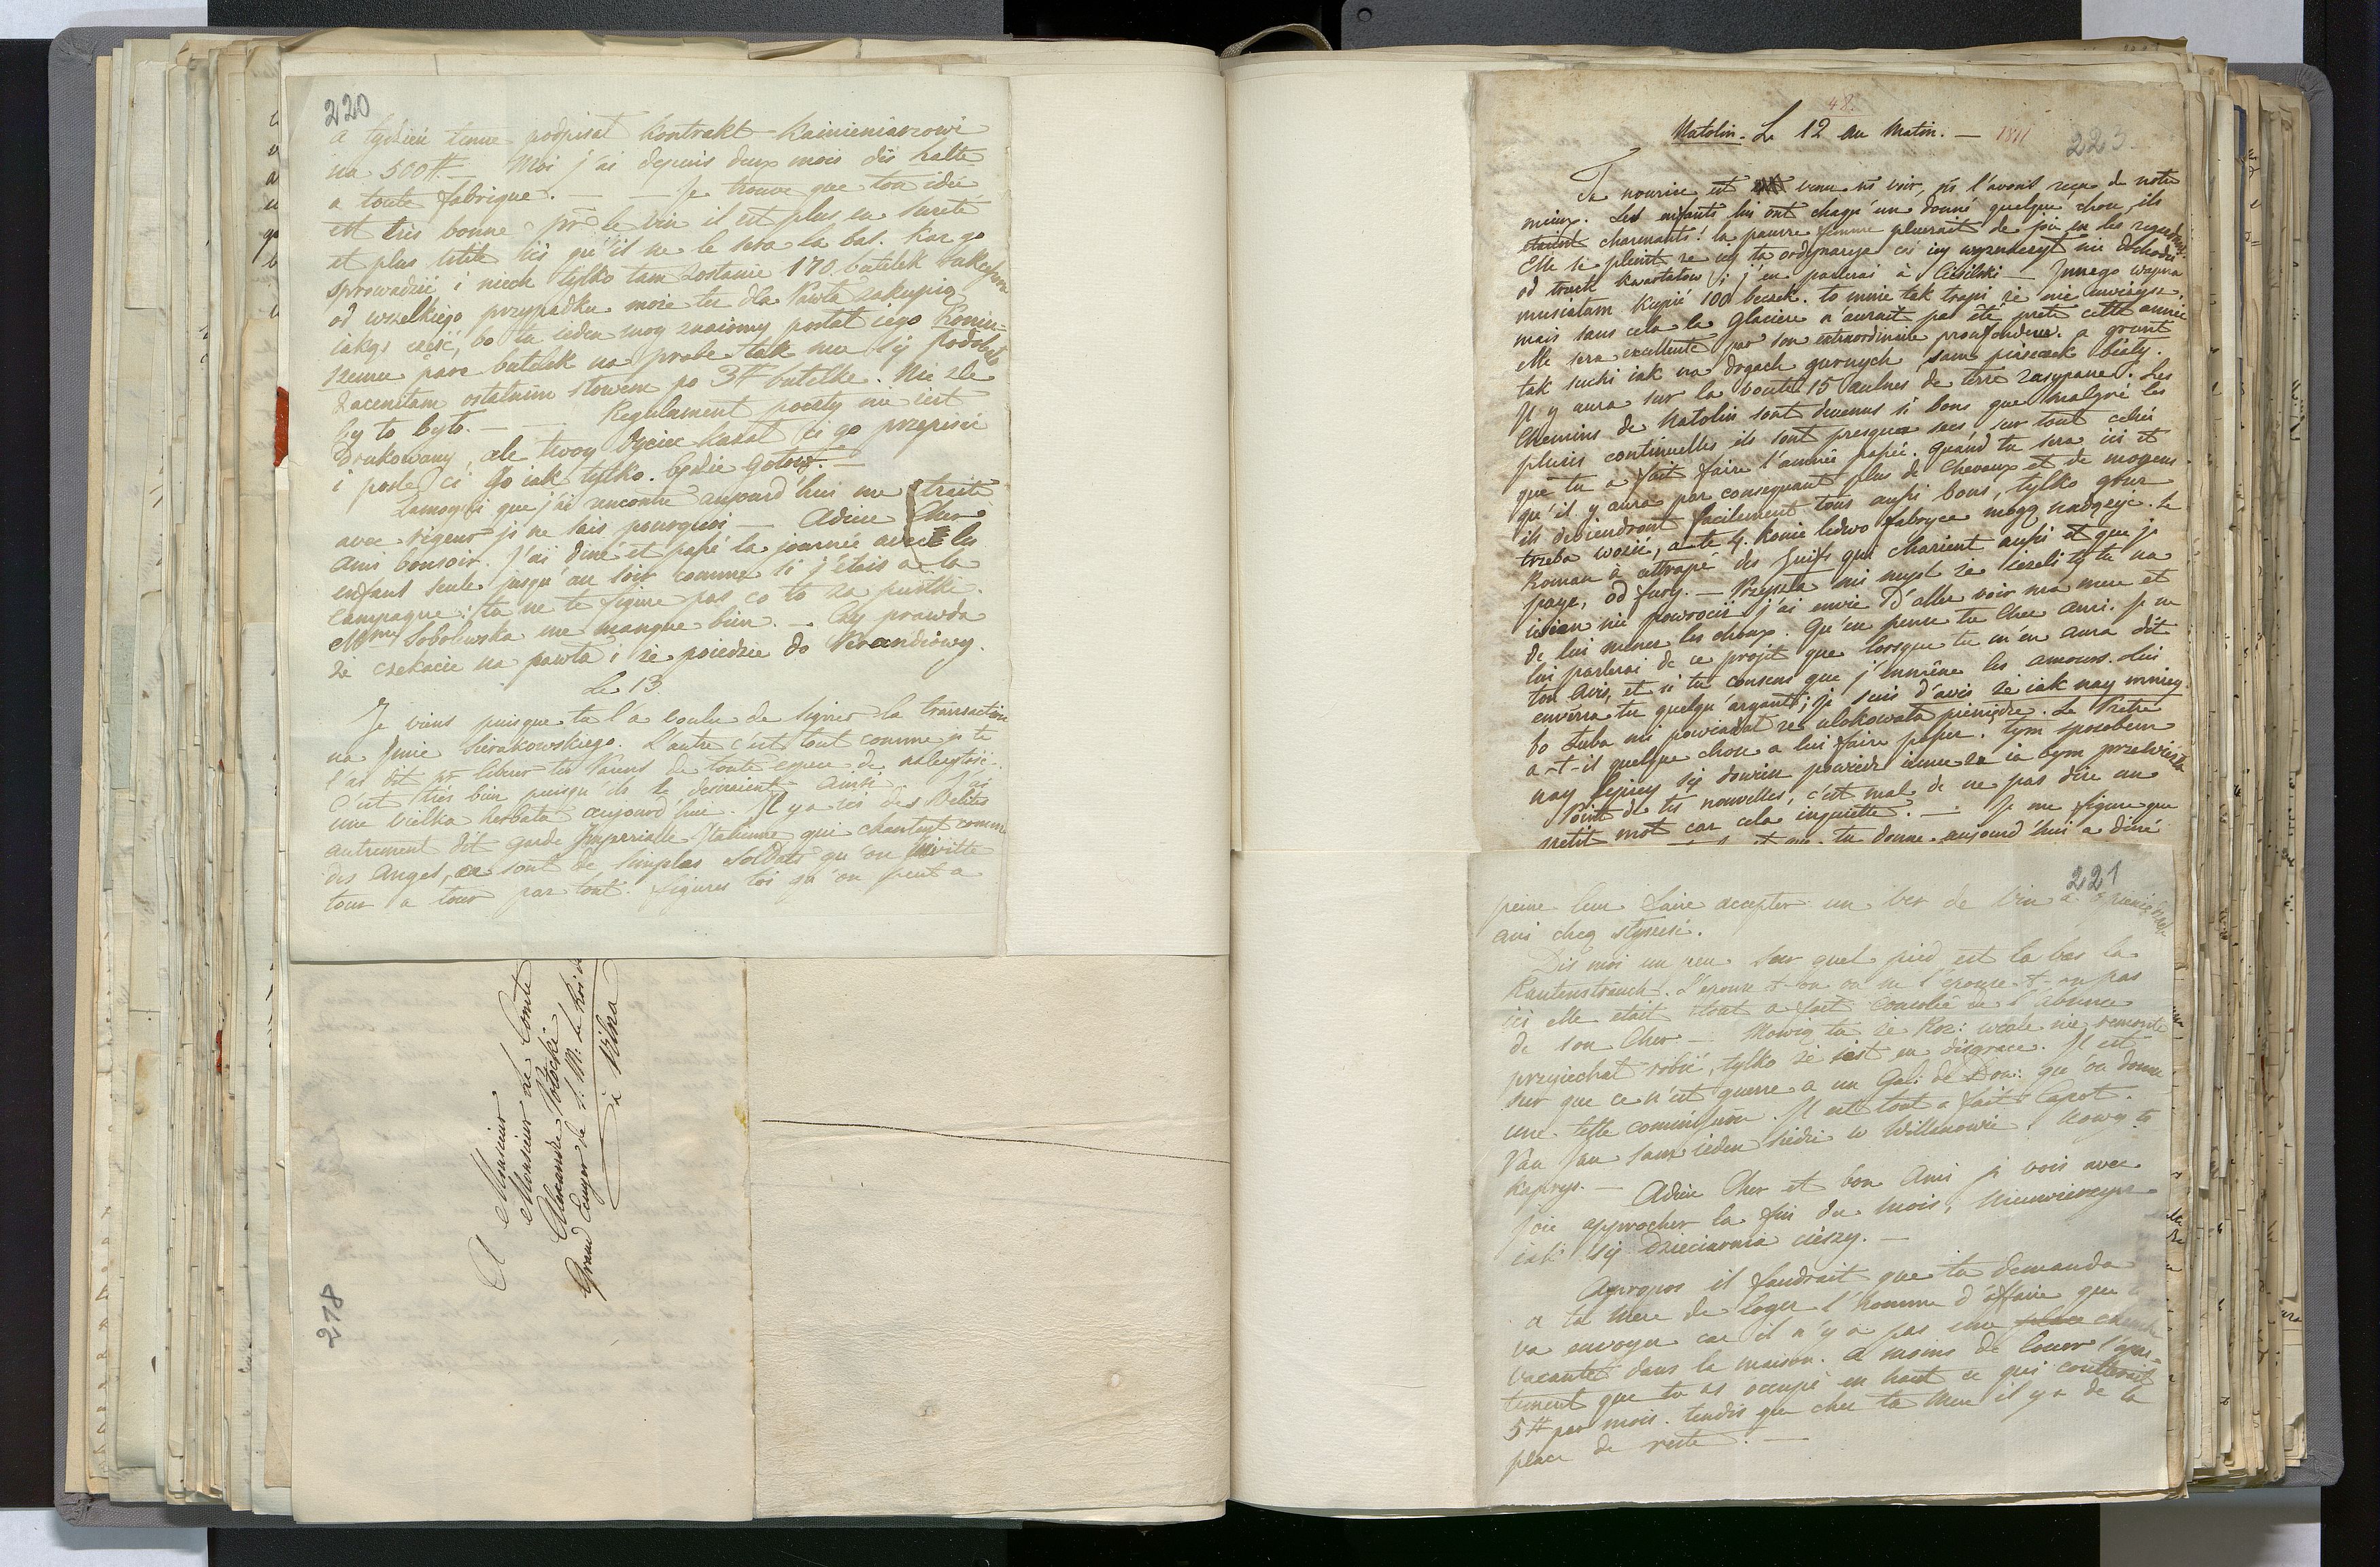 220
a tydzień temu podpisał kontrakt Kamieniarzowi
na 500 #. — Moi j'ai depuis deux mois dis halte
a toute fabrique. — — Je trouve que ton idée
est tres bonne pr le vin il est plus en sureté
et plus utile ici qu'il ne le sera la bas. Kaz go
sprowadzić i niech tylko tam zostanie 170 butelek
od wszelkiego przypadku może tu dla Pawła zakupią
iakąś część, bo tu ieden moy znaiomy posłał iego Koniu=
szemu parę butelek na probę tak mu się podobało
zaceniłam ostatnim słowem po 3 # butelkę. Nie źle
by to było. — — Regulament poczty nie iest
Drukowany, ale twoy Oyciec kazał ci go przepisać
i poszle ci go iak tylko będzie gotowy. —
Zamoyski que j'ai rencontré aujourd'hui me traite
avec rigeur je ne sais pourquoi — Adieu Cher
Ami bonsoir. J'ai diné et passé la journée avec les
enfans seule jusqu'au soir comme si j'étais a la
campagne; tu ne te figure pas co to za pustki.
Mme Sobolewska me manque bien. — Czy prawda
że czekacie na pawła i że poiedzie do Werandiowy.
Le 13.
Je viens puisque tu l'a voulu de signer la transaction
na Jmie Sierakowskiego. L'autre c'est tout comme je te
l'as dit pr liberer tes Parens de toute espece de
C'est tres bien puisqu'ils le desiraient ainsi. J'ai
une wielka herbata aujourd'hui. Il y a ici des Velites
autrement dit garde Imperialle Italienne qui chantent comme
des Anges, ce sont de simples Soldats qu'on invitte
tour a tour par tout. figures toi qu'on peut a
A Monsieur
Monsieur le Comte
Alexandre Potocki
Grand Ecuyer de S. M. le Roi de
à Vilna
218
48.
Natolin. Le 12 au Matin. — 1811
223.
Ta nourice est venu ns voir, ns l'avons reçu de notre
mieux. Les enfants lui ont chaqu'un donné quelque chose, ils
etaient charmants! la pauvre femme pleurait de joie en les regardant.
Elle se pleint że iey ta ordynarya coś iey wyznaczył nie dochodzi
od trzech kwartałow; j'en parlerai à Cicilski — Innego wapna
musiałam kupić 100 beczek. to mnie tak trapi że nie uwierzysz,
mais sans cela la Glaciere n'aurait pas été prete cette année
elle sera excellente par son extraordinaire proufondeur. a grunt
tak suchi iak na drogach gurnych sam piaseczek biały.
Il y aura sur la voute 15 aulnes de terre zasypane. Les
Chemins de Natolin sont devenus si bons que malgré les
pluies continuelles ils sont presque secs sur tout celui
que tu a fait faire l'année passée. Quand tu sera ici et
qu'il y aura par consequant plus de Chevaux et de moyens
ils deviendront facilement tous aussi bons, tylko gruz
trzeba wozić, a te 4 konie ledwo fabryce mogą nadążyć. Le
Roman à attrapé des Juifs qui charient aussi et que je
paye, od fury. — Przyszła mi mysl że ieżeli ty tu na
nie powrocisz j'ai envie d'aller voir ma mere et
de lui mener les choux. Qu'en pense tu Cher Ami. je ne
lui parlerai de ce projet que lorsque tu m'en aura dit
ton avis, et si tu consens que j'emmène les amours. Lui
enverra tu quelqu'argent; je suis d'avis że iak nay mniey
bo Luba mi powiadał że ulokowała pieniądze. Le Prêtre
a-t-il quelque chose a lui faire passer. tym sposobem
nay lepiey się dowiesz powiedz iemu że ia bym przewiozła
Point de tes nouvelles, c'est mal de ne pas dire un
petit mot car cela inquiette. — Je me figure que
tu donne. aujourd'hui a diné
221
peine leur faire accepter un ver de vin a
ani chcą słyszeć.
Dis moi un peu sur quel pied est la bas la
Rautenstrauch. L'epouse-t-on ou ne l'epouse-t-on pas
ici elle etait tout a fait consolée de l'absence
de son Cher — Mowią tu że Roz: wcale nie remonte
przyiechał robić, tylko że iest en disgrace. Il est
sur que ce n'est guerre a un Gal: de Divi: qu'on donne
une telle commission. Il est tout a fait Capot.
Pan Jan sam ieden siedzi w Willanowie; nowy to
kaprys. — Adieu Cher et bon Ami je vois avec
joie approcher la fin du mois; Nieuwierzysz
iak się dzieciarnia cieszy. —
Apropos il faudrait que tu demanda
a ta Mere de loger l'homme d'affaire que
va envoyer car il n'y a pas une place
vacante dans la maison. a moins de louer l'apar=
tement que tu as occupé en haut ce qui coutterait
5 # par mois. tendis que chez ta Mere il y a de la
place de reste. —